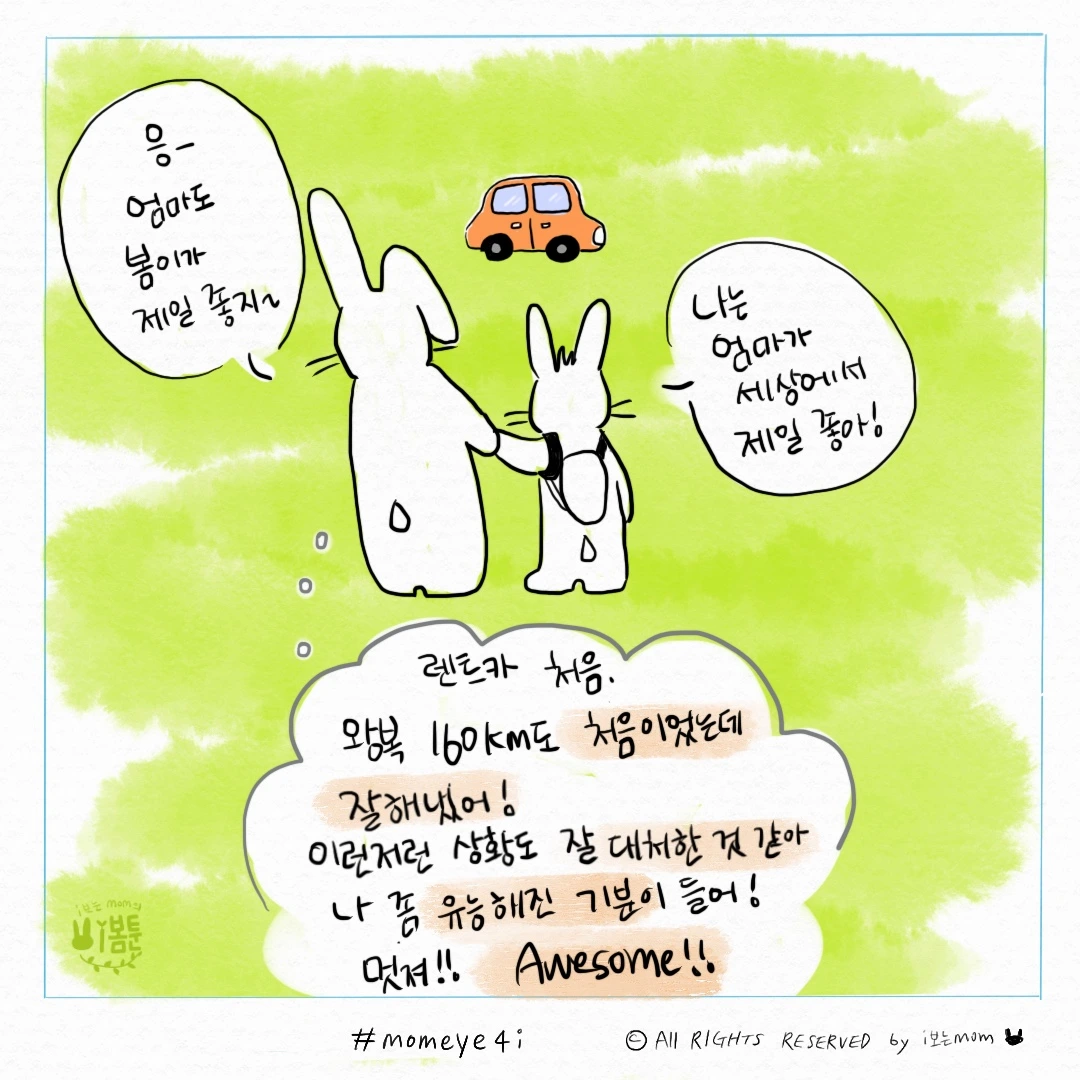 응-
엄마도
봄이가
제일 좋지~
나는
엄마가
세상에서
제일 좋아!
렌트카 처음.
왕복 160km도 처음이었는데
잘해냈어!
이런저런 상황도 잘 대처한 것 같아
나 좀 유능해진 기분이 들어!
멋져!! Awesome!!
i보는 mom의
i봄툰
#momeye4i
© All RIGHTS RESERVED by i보는mom